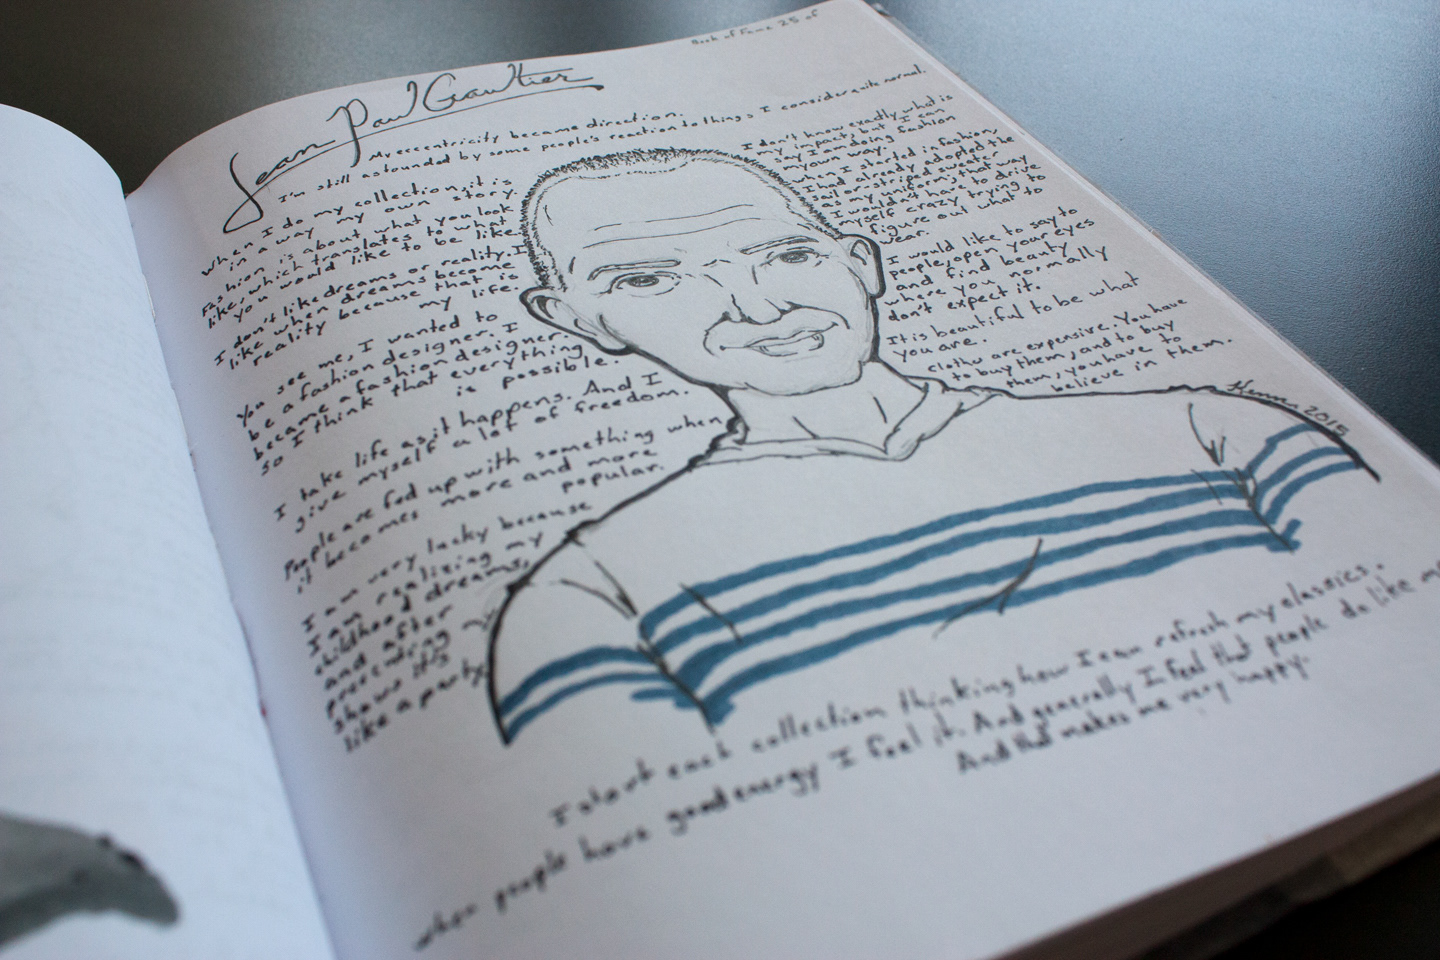 Book of Fame 25 of
Jean Paul Gaultier
My eccentricity became direction.
I'm still astounded by some people's reaction to things I consider quite normal.
When I do my collection, it is
in a way my own story.
Fashion is about what you look
like, which translates to what
you would like to be like.
I don't like dreams or reality. I
like when dreams become
reality because that is
my life.
You see me, I wanted to
be a fashion designer. I
became a fashion designer.
So I think that everything
is possible.
I take life as it happens. And I
give myself a lot of freedom.
People are fed up with something when
it becomes more and more
popular.
I am very lucky because
I am realizing my
childhood dreams,
and after
presenting
shows it's
like a party.
I don't know exactly what is
my impact, but I can
say I am doing fashion
my own way.
When I started in fashion,
I had already adopted the
sailor-striped sweater
as my uniform that way
I wouldn't have to drive
myself crazy trying to
figure out what to
wear.
I would like to say to
people, open your eyes
and find beauty
where you normally
don't expect it.
It is beautiful to be what
you are.
Clothes are expensive. You have
to buy them, and to buy
them, you have to
believe in them.
2015
I start each collection thinking how I can refresh my classics.
When people have good energy I feel it. And generally I feel that people do like
And that makes me very happy.